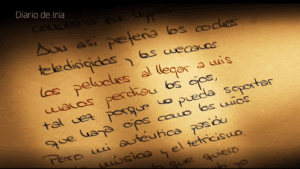 Diario de Iria
Aun así prefería los coches
teledirigidos y los mecanos.
Los peluches al llegar a mis
manos perdían los ojos,
tal vez porque no pueda soportar
que haya ojos como los míos.
Pero mi auténtica pasión
música y el tetricismo.
que quiero